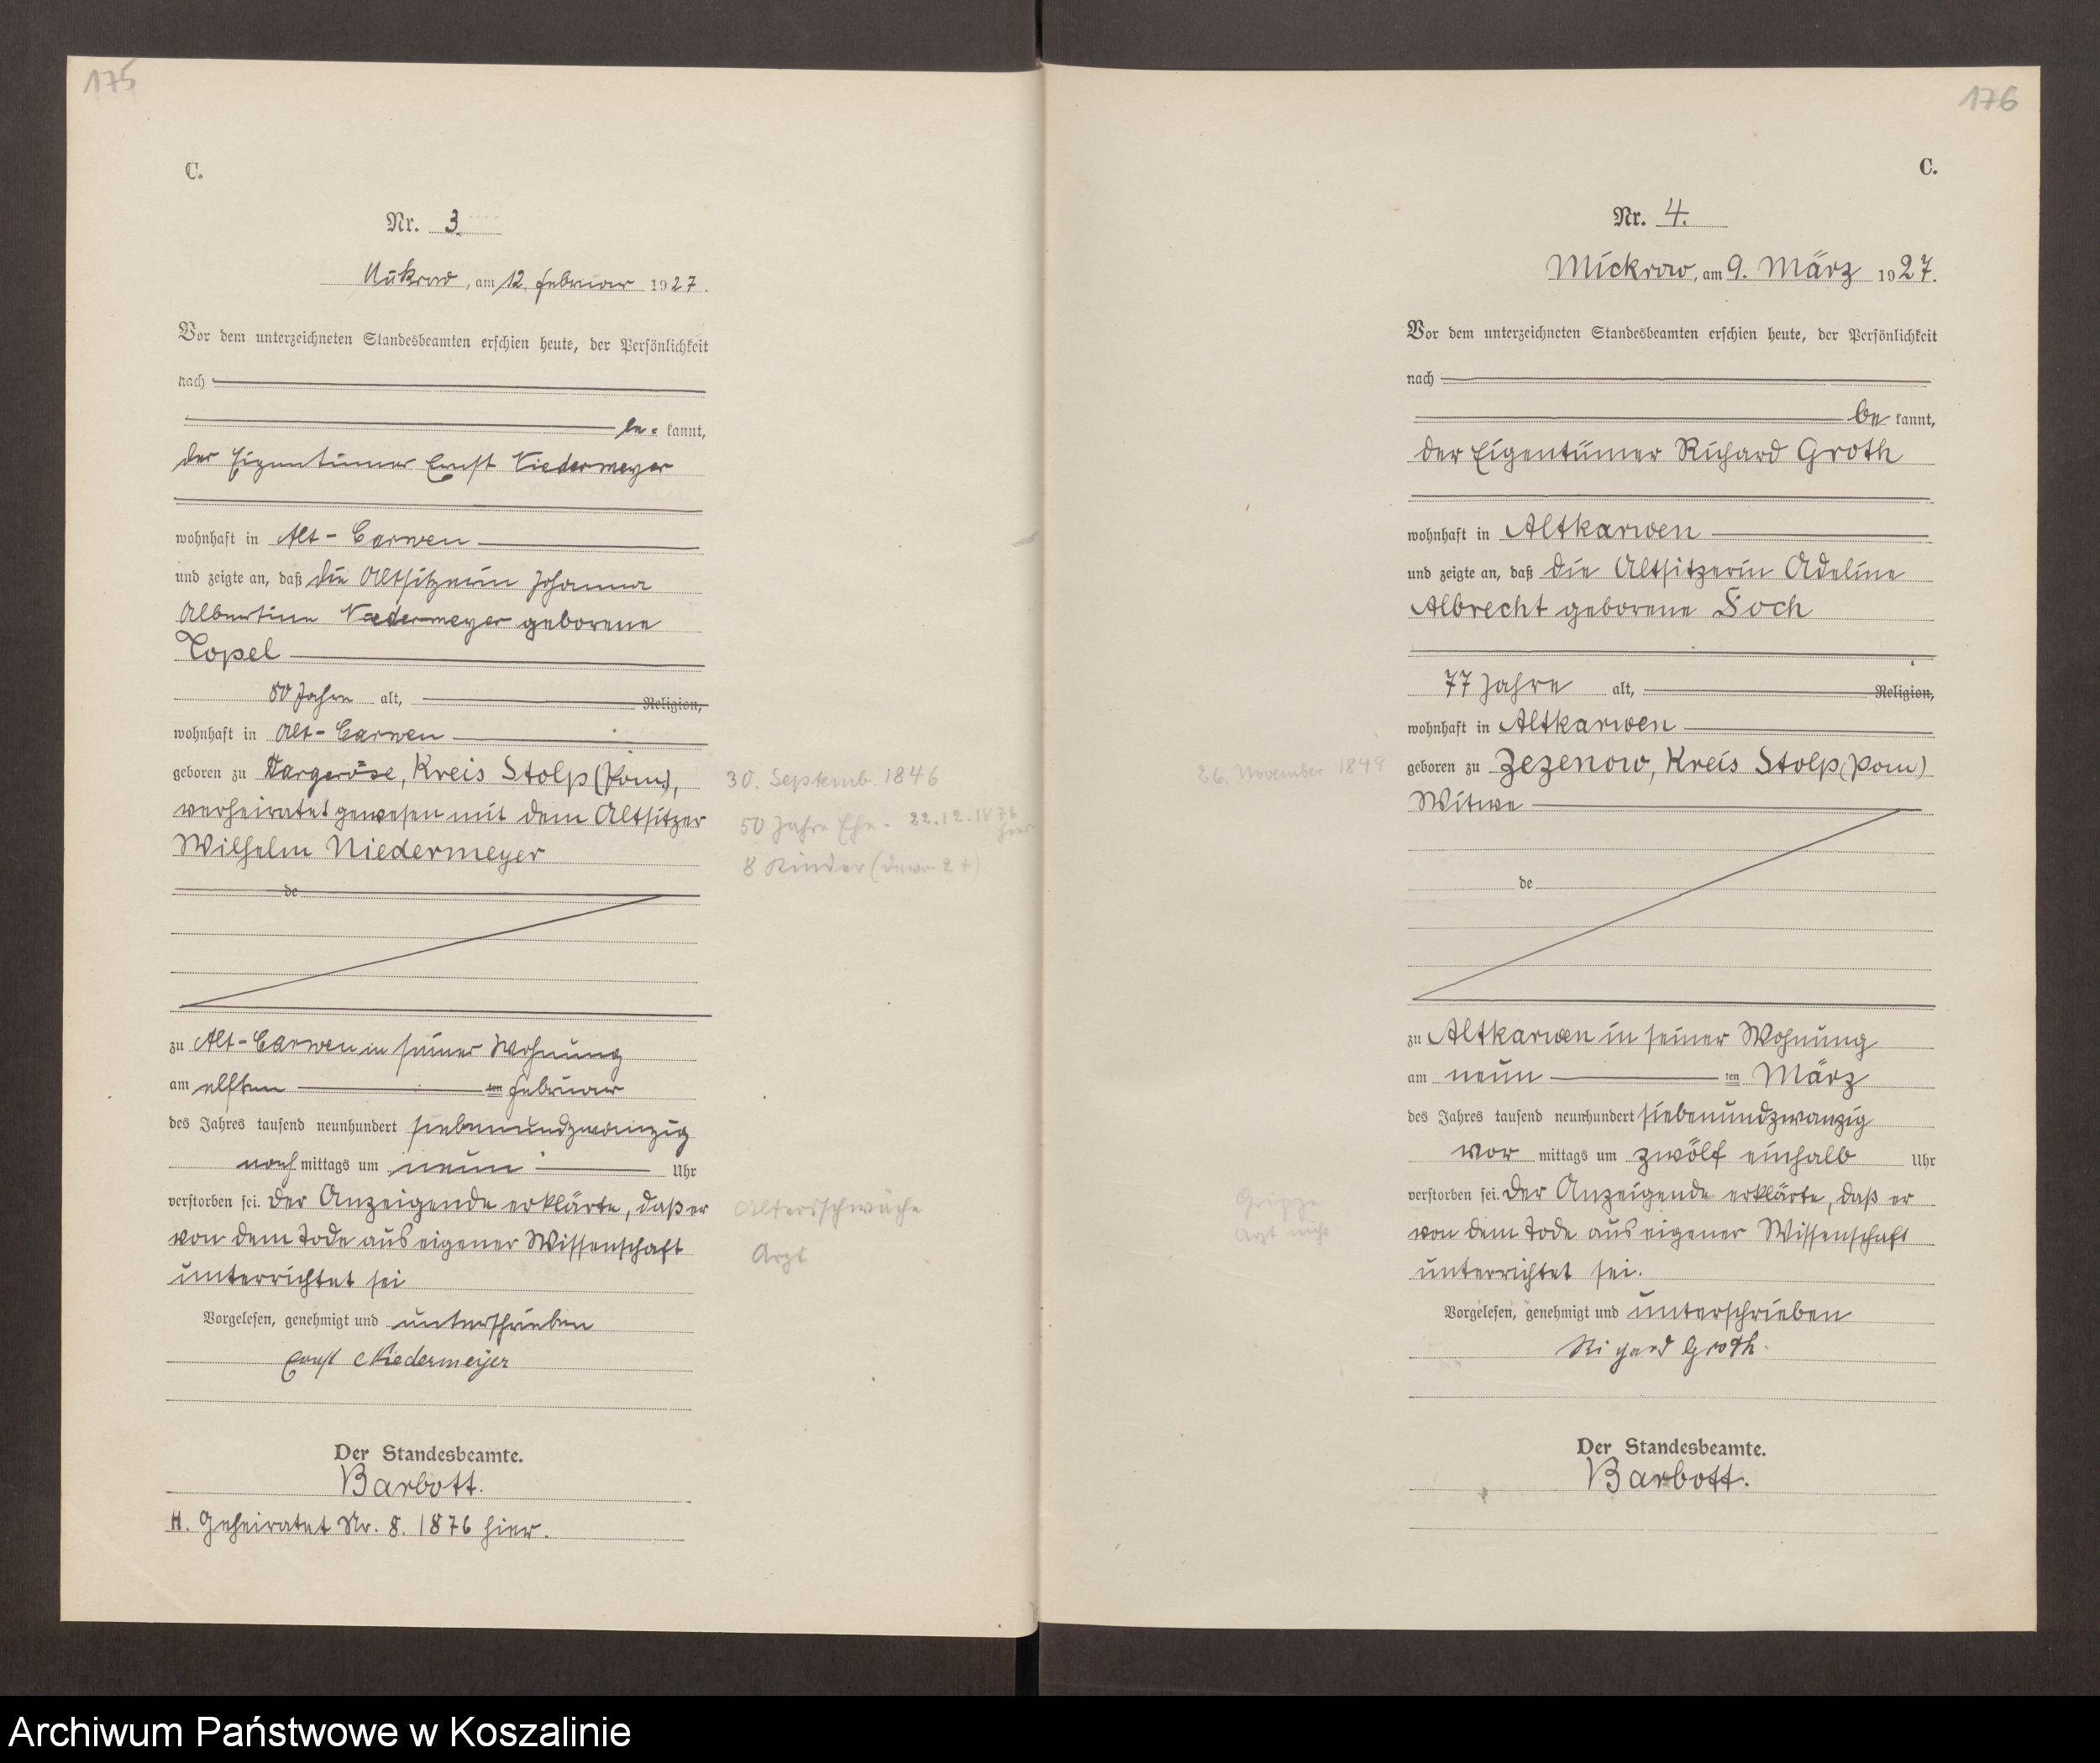 175
C.
Nr. 3.
Mickrow, am 12. Februar 1927.
Vor dem unterzeichneten Standesbeamten erschien heute, der Persönlichkeit
nach
be= kannt,
der Eigentümer Ernst Niedermeyer
wohnhaft in Alt-Carwen
und zeigte an, daß die Altsitzerin Johanna
Albertine Niedermeyer geborene
Topel
80 Jahre alt, Religion,
wohnhaft in Alt-Carwen
geboren zu Dargeröse, Kreis Stolp (Pom),
verheiratet gewesen mit dem Altsitzer
Wilhelm Niedermeyer
de
zu Alt-Carwen in seiner Wohnung
am elften ten Februar
des Jahres tausend neunhundert siebenundzwanzig
nach mittags um neun Uhr
verstorben sei. Der Anzeigende erklärte, daß er
von dem Tode aus eigener Wissenschaft
unterrichtet sei
Vorgelesen, genehmigt und unterschrieben
Ernst Niedermeijer
Der Standesbeamte.
Barbott.
H. Geheiratet Nr. 8. 1876 hier.
30. Septemb. 1846
50 Jahre Ehe - 22.12.1876
hier
8 Kinder (davon 2 +)
Altersschwäche
Arzt
176
C.
Nr. 4.
Mickrow, am 9. März 1927.
Vor dem unterzeichneten Standesbeamten erschien heute, der Persönlichkeit
nach
be kannt,
der Eigentümer Richard Groth
wohnhaft in Altkarwen
und zeigte an, daß die Altsitzerin Adeline
Albrecht geborene Koch
77 Jahre alt, Religion,
wohnhaft in Altkarwen
geboren zu Zezenow, Kreis Stolp (Pom)
Witwe
de
zu Altkarwen in seiner Wohnung
am neun ten März
des Jahres tausend neunhundert siebenundzwanzig
vor mittags um zwölf einhalb Uhr
verstorben sei. Der Anzeigende erklärte, daß er
von dem Tode aus eigener Wissenschaft
unterrichtet sei.
Vorgelesen, genehmigt und unterschrieben
Richard Groth.
Der Standesbeamte.
Barbott.
26. November 1849
Grippe
Arzt nicht
Archiwum Państwowe w Koszalinie